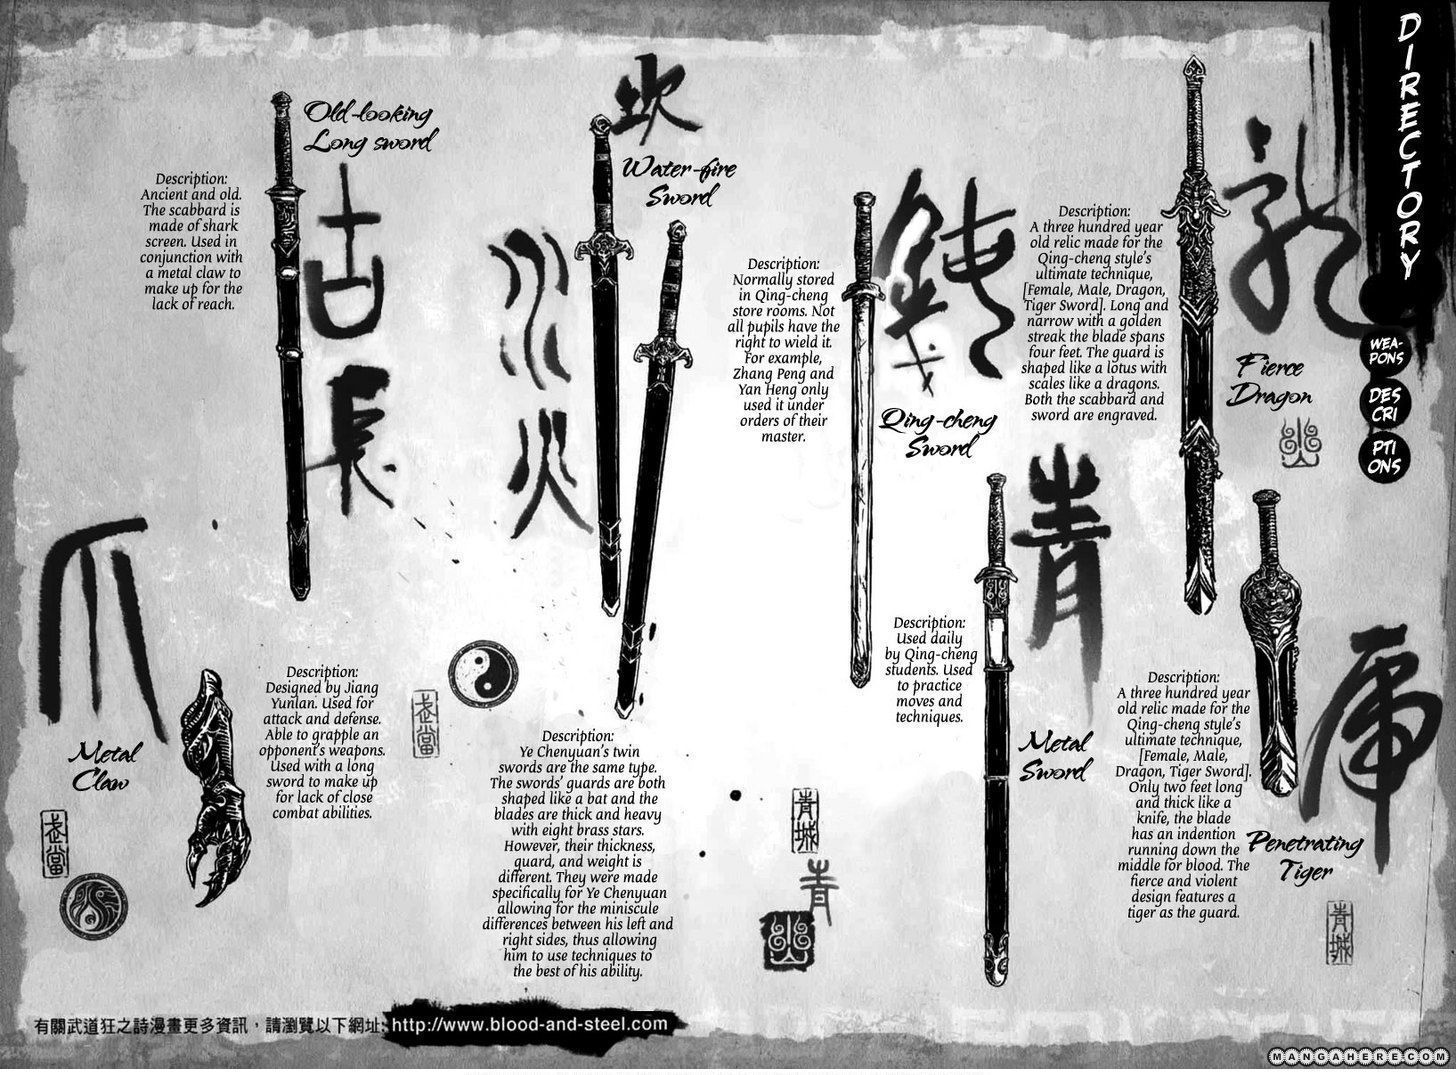 DIRECTORY
WEA-
PONS
DES
CRI
PTI
ONS
Old-looking
Long sword
Description:
Ancient and old.
The scabbard is
made of shark
screen. Used in
conjunction with
a metal claw to
make up for the
lack of reach.
古
長
Water-fire
Sword
水
火
Description:
Ye Chenyuan's twin
swords are the same type.
The swords' guards are both
shaped like a bat and the
blades are thick and heavy
with eight brass stars.
However, their thickness,
guard, and weight is
different. They were made
specifically for Ye Chenyuan
allowing for the miniscule
differences between his left and
right sides, thus allowing
him to use techniques to
the best of his ability.
Description:
Normally stored
in Qing-cheng
store rooms. Not
all pupils have the
right to wield it.
For example,
Zhang Peng and
Yan Heng only
used it under
orders of their
master.
Qing-cheng
Sword
Description:
A three hundred year
old relic made for the
Qing-cheng style's
ultimate technique,
[Female, Male, Dragon,
Tiger Sword]. Long and
narrow with a golden
streak the blade spans
four feet. The guard is
shaped like a lotus with
scales like a dragons.
Both the scabbard and
sword are engraved.
Fierce
Dragon
爪
Metal
Claw
Description:
Designed by Jiang
Yunlan. Used for
attack and defense.
Able to grapple an
opponent's weapons.
Used with a long
sword to make up
for lack of close
combat abilities.
武當
武當
青
Description:
Used daily
by Qing-cheng
students. Used
to practice
moves and
techniques.
Metal
Sword
青城
青
Description:
A three hundred year
old relic made for the
Qing-cheng style's
ultimate technique,
[Female, Male,
Dragon, Tiger Sword].
Only two feet long
and thick like a
knife, the blade
has an indention
running down the
middle for blood. The
fierce and violent
design features a
tiger as the guard.
Penetrating
Tiger
虎
青城
有關武道狂之詩漫畫更多資訊，請瀏覽以下網址: http://www.blood-and-steel.com
MANGAHERE.COM